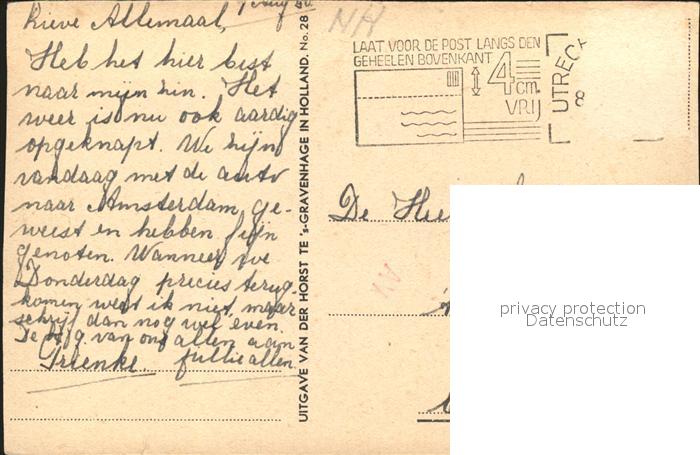 Lieve Allemaal,
Heb het hier best
naar mijn zin. Het
weer is nu ook aardig
opgeknapt. We zijn
vandaag met de auto
naar Amsterdam ge-
weest en hebben fijn
genoten. Wanneer we
Donderdag precies terug
komen weet ik niet maar
schrijf dan nog wel even.
De van ons allen aan
Trienke. jullie allen
UITGAVE VAN DER HORST TE 's-GRAVENHAGE IN HOLLAND. No. 28
NH
LAAT VOOR DE POST LANGS DEN
GEHEELEN BOVENKANT
4 cm.
VRIJ
UTRECH
8
De Hee
privacy protection
Datenschutz